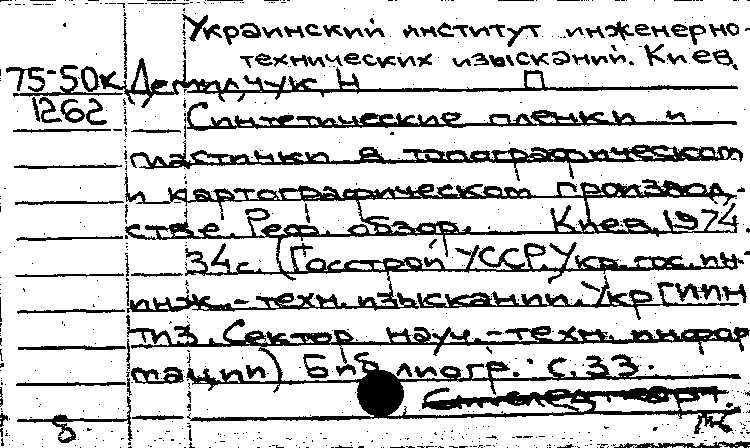 Украинский институт инженерно-
технических изысканий. Киев.
75-50к Демидчук, Н
1262
Синтетические пленки и
пластинки в топографическом
и картографическом производ-
стве. Реф. обзор. Киев, 1974.
34с. (Госстрой УССР. Укр. гос. ин-т
инж.-техн. изысканий. УкрГИИН
ТИЗ. Сектор науч.-техн. инфор
мации) Библиогр.: с.33.
8